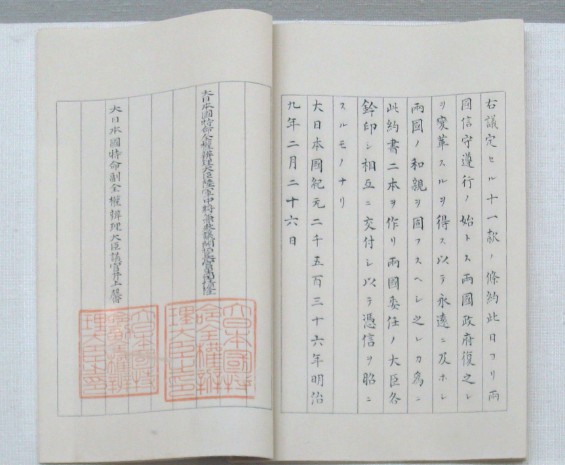 右議定セル十一款ノ條約此日ヨリ兩
國信守遵行ノ始トス兩國政府復之レ
ヲ變革スルヲ得ス以テ永遠ニ及ホシ
兩國ノ和親ヲ固フスヘシ之レカ爲ニ
此約書二本ヲ作リ兩國委任ノ大臣各
鈐印シ相互ニ交付シ以テ憑信ヲ昭ニ
スルモノナリ
大日本國紀元二千五百三十六年明治
九年二月二十六日
大日本國特命全權辨理大臣陸軍中將兼參議開拓長官黑田清隆
大日本國特
命全權辨
理大臣之印
大日本國特命副全權辨理大臣議官井上馨
大日本國特
命副全權辨
理大臣之印